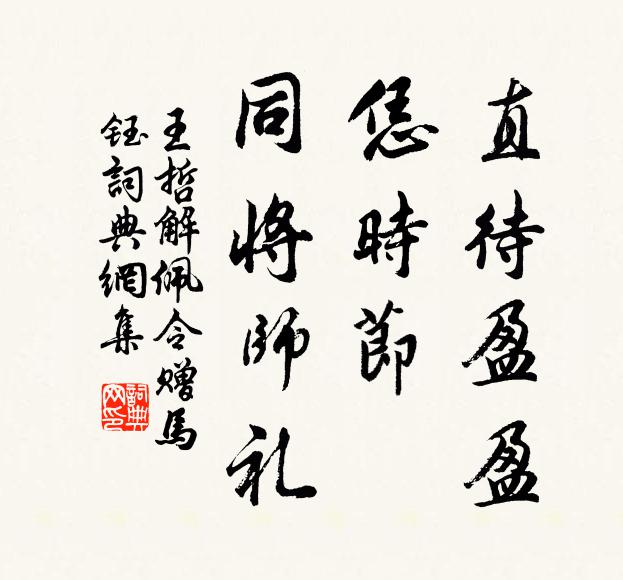 直待盈盈
恁時節
同將師礼
王哲解佩令赠馬
鈺詞典網集
詞典
网印